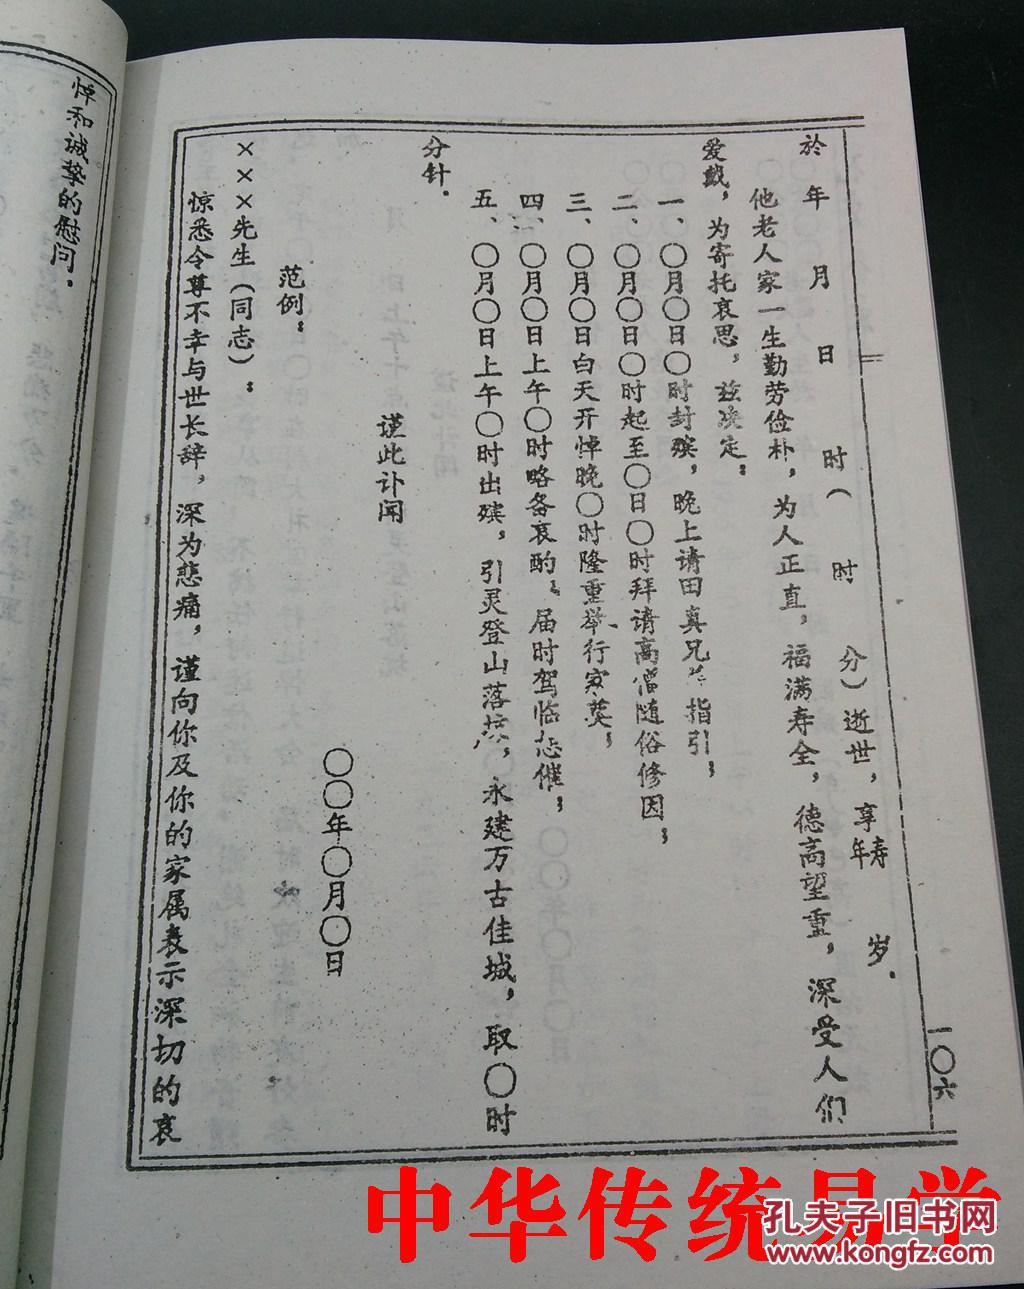 於年 月 日 时( 时 分)逝世，享年寿 岁.
他老人家一生勤劳俭朴，为人正直，福满寿全，德高望重，深受人们
爱戴，为寄托哀思，兹决定：
一、〇月〇日〇时封殡，晚上请田真兄弟指引；
二、〇月〇日〇时起至〇日〇时拜请高僧随俗修因；
三、〇月〇日白天开悼晚〇时隆重举行家奠；
四、〇月〇日上午〇时略备哀酌。届时驾临恕催；
五、〇月〇日上午〇时出殡，引灵登山落 ，永建万古佳城，取〇时
分针.
谨此讣闻
〇〇年〇月〇日
范例：
×××先生(同志)：
惊悉令尊不幸与世长辞，深为悲痛，谨向你及你的家属表示深切的哀
悼和诚挚的慰问.
一〇六
中华传统易学
孔夫子旧书网
www.kongfz.com